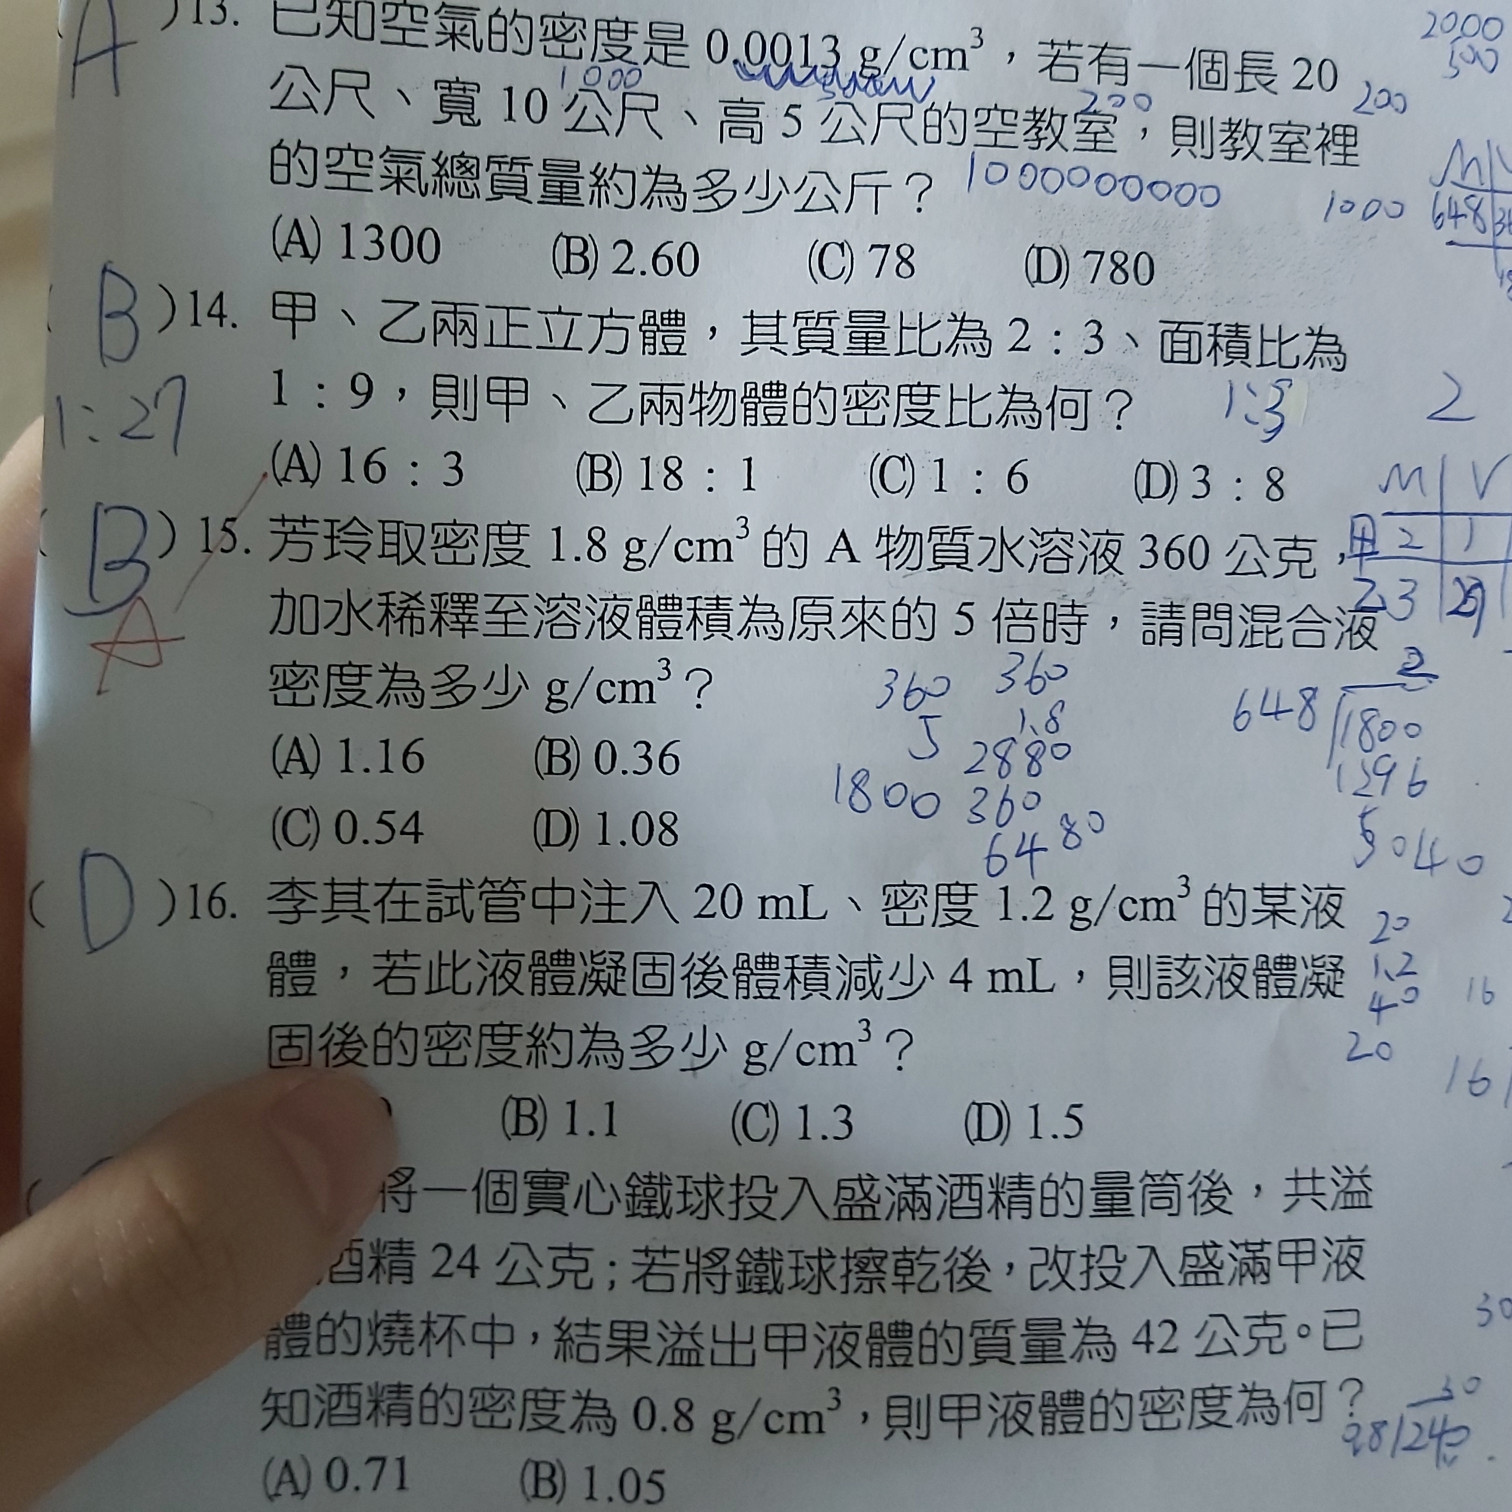 A )13. 已知空氣的密度是 0.0013 g/cm³，若有一個長 20
2000
500
1000
200
200
公尺、寬 10 公尺、高 5 公尺的空教室，則教室裡
的空氣總質量約為多少公斤？ 1000000000
1000
M V
648
(A) 1300 (B) 2.60 (C) 78 (D) 780
( B )14. 甲、乙兩正立方體，其質量比為 2：3、面積比為
1：9，則甲、乙兩物體的密度比為何？
1:27
2
(A) 16：3 (B) 18：1 (C) 1：6 (D) 3：8
M V
甲 2 1
( B ) 15. 芳玲取密度 1.8 g/cm³ 的 A 物質水溶液 360 公克，
A
加水稀釋至溶液體積為原來的 5 倍時，請問混合液
密度為多少 g/cm³？
360 360
5 1.8
1800 2880
360
6480
2
648 1800
1296
5040
(A) 1.16 (B) 0.36
(C) 0.54 (D) 1.08
( D )16. 李其在試管中注入 20 mL、密度 1.2 g/cm³ 的某液
體，若此液體凝固後體積減少 4 mL，則該液體凝
固後的密度約為多少 g/cm³？
20
1.2
40
20
16
16
(B) 1.1 (C) 1.3 (D) 1.5
將一個實心鐵球投入盛滿酒精的量筒後，共溢
酒精 24 公克；若將鐵球擦乾後，改投入盛滿甲液
體的燒杯中，結果溢出甲液體的質量為 42 公克。已
知酒精的密度為 0.8 g/cm³，則甲液體的密度為何？
30
30
(A) 0.71 (B) 1.05